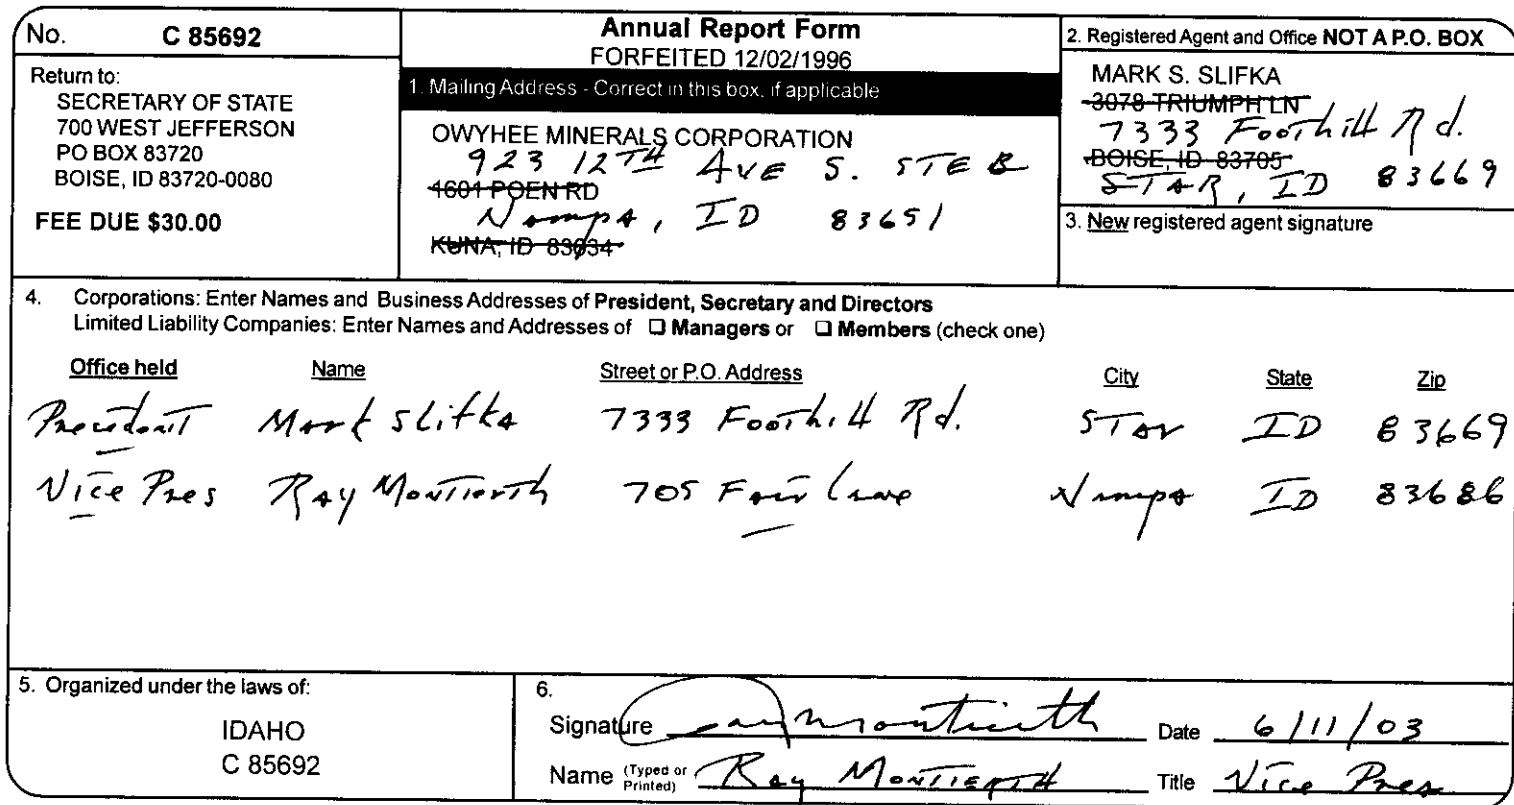 No. C 85692
Return to:
SECRETARY OF STATE
700 WEST JEFFERSON
PO BOX 83720
BOISE, ID 83720-0080
FEE DUE $30.00
Annual Report Form
FORFEITED 12/02/1996
1. Mailing Address - Correct in this box, if applicable
OWYHEE MINERALS CORPORATION
923 12TH AVE S. STE B
4601 POEN RD
Nampa, ID 83651
KUNA, ID 83634
2. Registered Agent and Office NOT A P.O. BOX
MARK S. SLIFKA
3078 TRIUMPH LN
7333 Foothill Rd.
BOISE, ID 83705
STAR, ID 83669
3. New registered agent signature
4. Corporations: Enter Names and Business Addresses of President, Secretary and Directors
Limited Liability Companies: Enter Names and Addresses of ❑ Managers or ❑ Members (check one)
Office held Name Street or P.O. Address City State Zip
President Mark Slifka 7333 Foothill Rd. Star ID 83669
Vice Pres Ray Montierth 705 Fair Lane Nampa ID 83686
5. Organized under the laws of:
IDAHO
C 85692
6.
Signature Ray Montierth Date 6/11/03
Name (Typed or Printed) Ray MONTIERTH Title Vice Pres